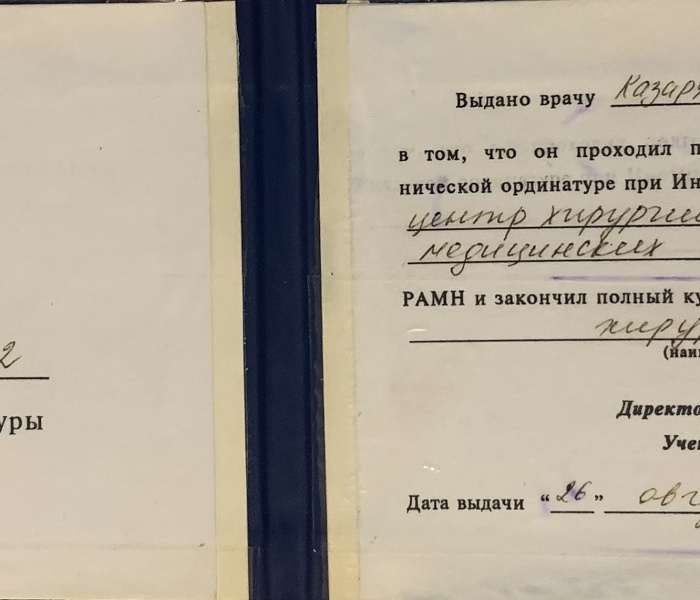 2
уры
Выдано врачу Казаря
в том, что он проходил п
нической ординатуре при Ин
центр хирургии
медицинских
РАМН и закончил полный ку
хирур
(наи
Директо
Уче
Дата выдачи “26” авг